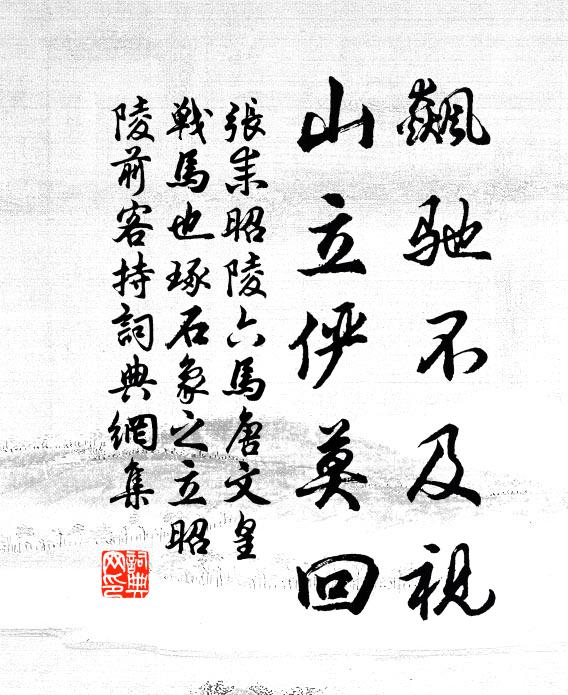 飆馳不及視
山立儼莫回
張耒昭陵六馬唐文皇
戰馬也琢石象之立昭
陵前客持詞典網集
詞典網印